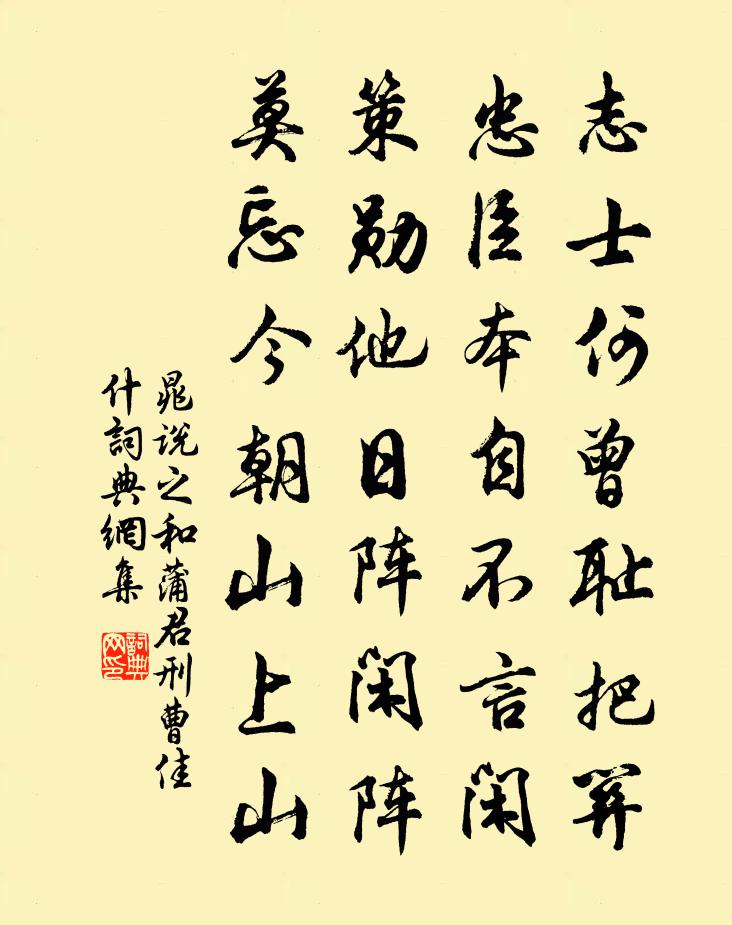 志士何曾耻把关
忠臣本自不言闲
策勋他日阵闲阵
莫忘今朝山上山
晁说之和蒲君刑曹佳
什詞典網集
詞典网印